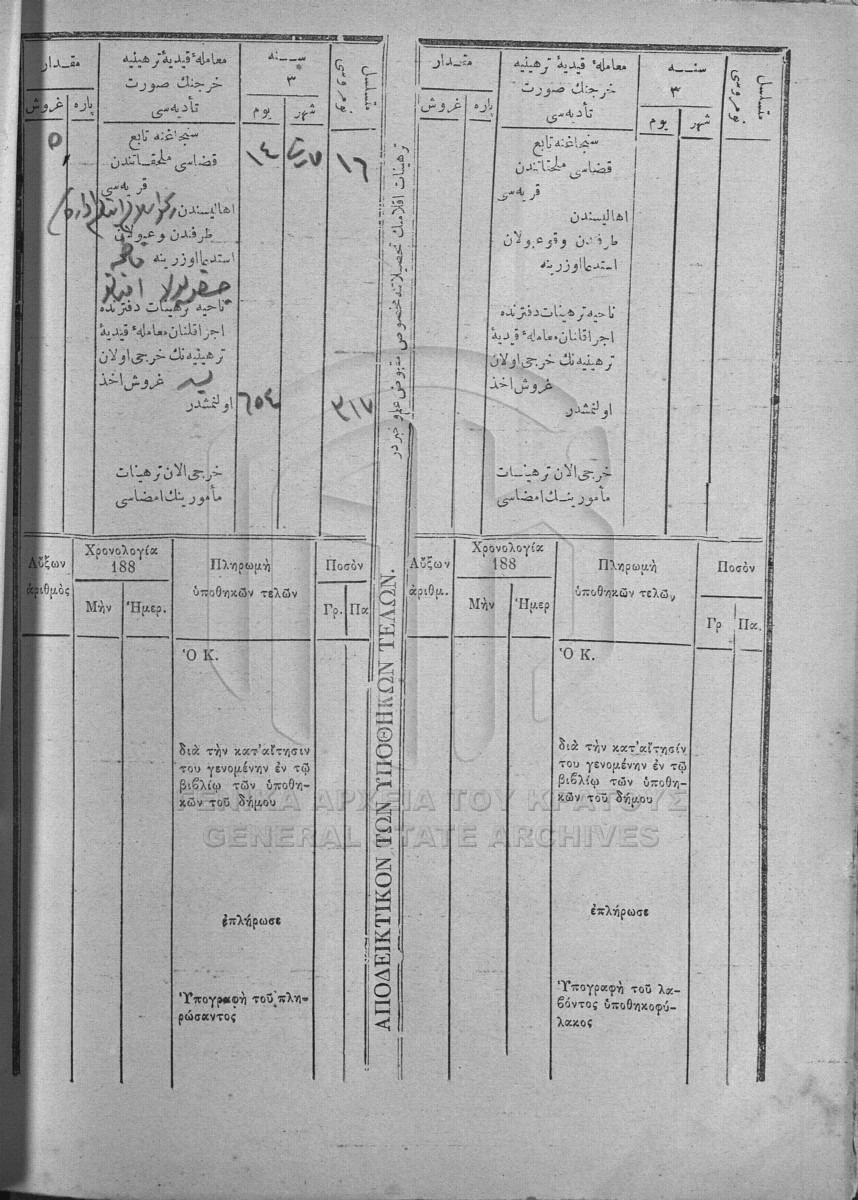 مقدار
غروش
پاره
معامله قيديۀ ترهينيه
خرجنك صورت
تأديه سى
سنه
٣
يوم
شهر
متسلسل
نومروسى
٥
سنجاغنه تابع
١٤
مارت
١٦
قضاسى ملحقاتندن
قريه سى
اهاليسندن
طرفندن وقوعبولان
استدعا اوزرينه
ناحيه ترهينات دفترنده
اجرا قلنان معاملۀ قيديۀ
ترهينيه نك خرجى اولان
غروش اخذ
اولنمشدر
٦٥٤
٣١٧
خرجى الان ترهينات
مأمورينك امضاسى
ترهينات اقلامنك تحصيلاتنه مخصوص مقبوض علم و خبردر
مقدار
غروش
پاره
معامله قيديۀ ترهينيه
خرجنك صورت
تأديه سى
سنه
٣
يوم
شهر
متسلسل
نومروسى
سنجاغنه تابع
قضاسى ملحقاتندن
قريه سى
اهاليسندن
طرفندن وقوعبولان
استدعا اوزرينه
ناحيه ترهينات دفترنده
اجرا قلنان معاملۀ قيديۀ
ترهينيه نك خرجى اولان
غروش اخذ
اولنمشدر
خرجى الان ترهينات
مأمورينك امضاسى
Αὔξων
ἀριθμὸς
Χρονολογία
188
Μὴν
Ἡμερ.
Πληρωμὴ
ὑποθηκῶν τελῶν
Ποσὸν
Γρ.
Πα
Ὁ Κ.
διὰ τὴν κατ'αἴτησιν
του γενομένην ἐν τῷ
βιβλίῳ τῶν ὑποθη-
κῶν τοῦ δήμου
ἐπλήρωσε
Ὑπογραφὴ τοῦ πλη-
ρώσαντος
ΑΠΟΔΕΙΚΤΙΚΟΝ ΤΩΝ ΥΠΟΘΗΚΩΝ ΤΕΛΩΝ.
Αὔξων
ἀριθμ.
Χρονολογία
188
Μὴν
Ἡμερ
Πληρωμὴ
ὑποθηκῶν τελῶν
Ποσὸν
Γρ
Πα.
Ὁ Κ.
διὰ τὴν κατ'αἴτησίν
του γενομένην ἐν τῷ
βιβλίῳ τῶν ὑποθη-
κῶν τοῦ δήμου
ἐπλήρωσε
Ὑπογραφὴ τοῦ λα-
βόντος ὑποθηκοφύ-
λακος
ΓΕΝΙΚΑ ΑΡΧΕΙΑ ΤΟΥ ΚΡΑΤΟΥΣ
GENERAL STATE ARCHIVES